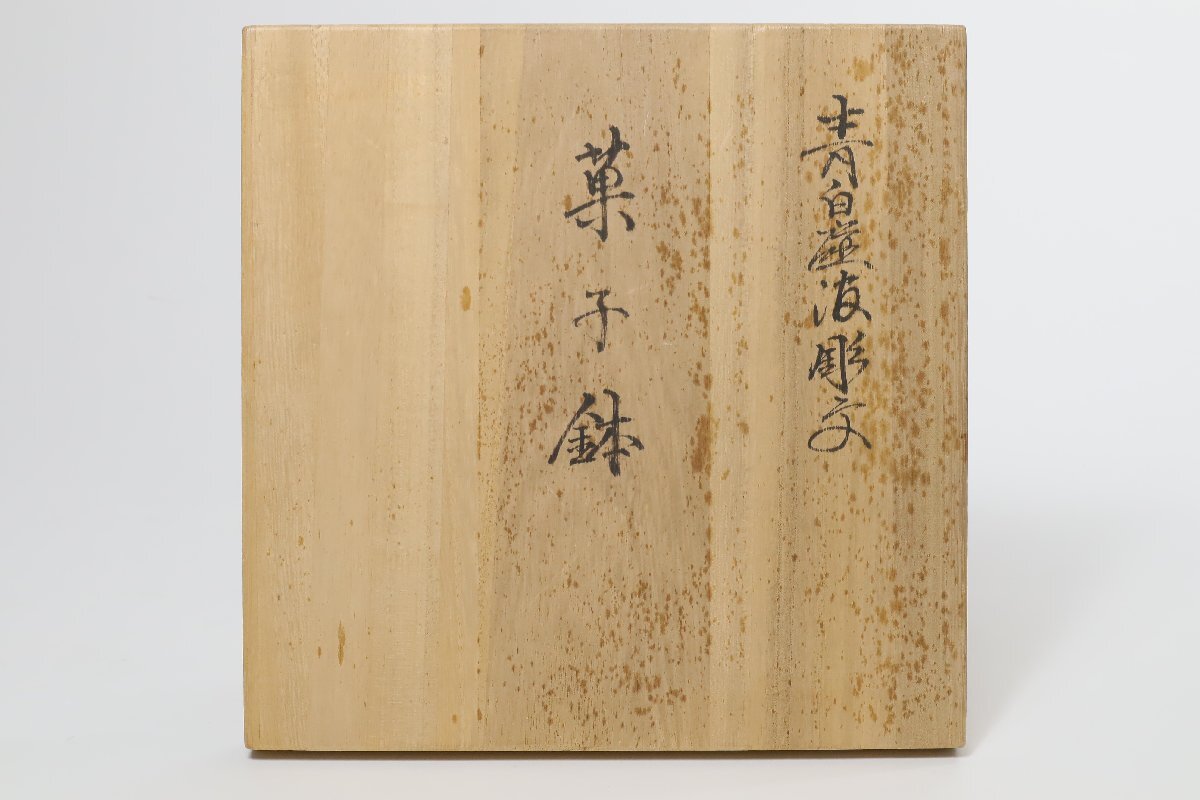 青白瓷波彫文
菓子鉢